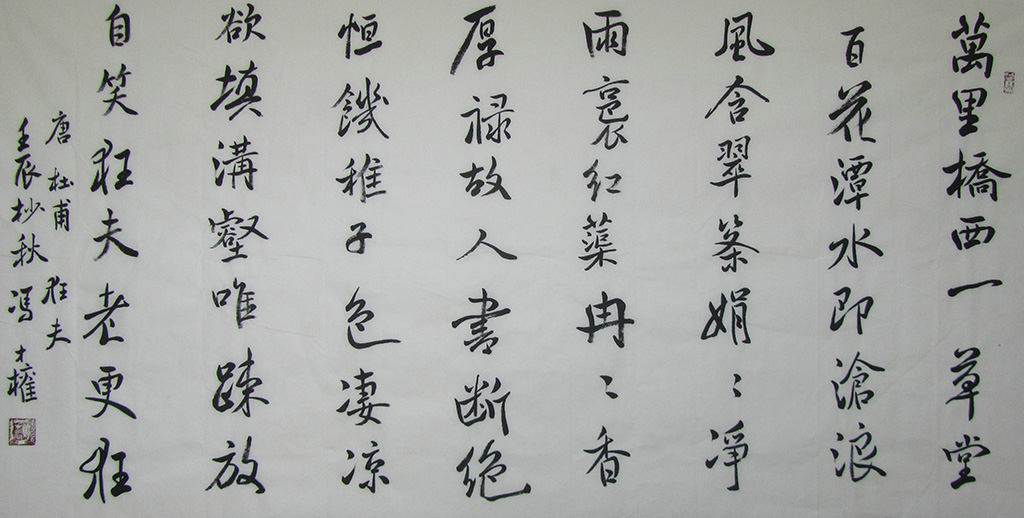 萬里橋西一草堂
百花潭水即滄浪
風含翠筿娟〻凈
雨裛红蕖冉〻香
厚禄故人書断绝
恒饑稚子色凄凉
欲填溝壑唯踈放
自笑狂夫老更狂
唐 杜甫 狂夫
壬辰杪秋 冯才權